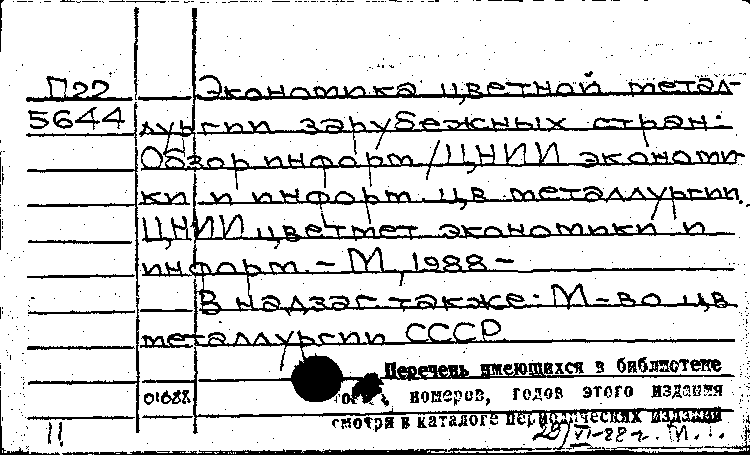 П22 Экономика цветной метал-
5644 лургии зарубежных стран:
Обзор. информ. /ЦНИИ экономи-
ки и информ. цв. металлургии.
ЦНИИцветмет экономики и
информ. - М., 1988 -
В надзаг. также: М-во цв.
металлургии СССР
Перечень имеющихся в библиотеке
01688 номеров, годов этого издания
смотри в каталоге периодических изданий
11 29/VI-88 г.